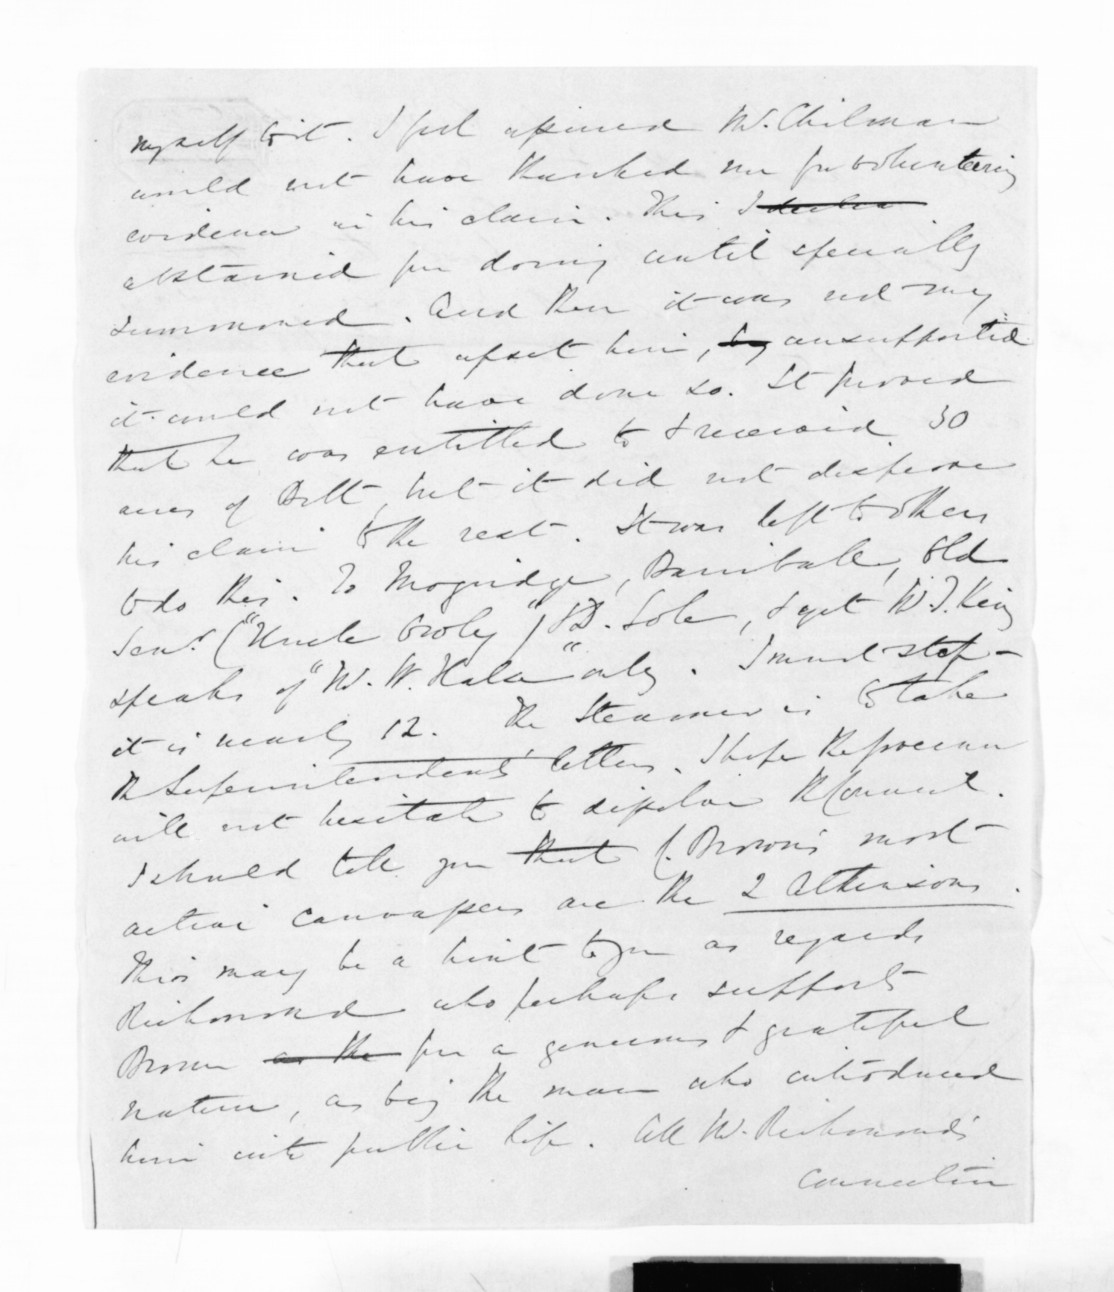 myself to it. I feel assured Mr. Chilman
would not have thanked me for volunteering
evidence in his claim. This I
abstained from doing until specially
summoned. And then it was not my
evidence that upset him, by unsupported
it could not have done so. It proved
that he was entitled to & received 50
acres of Bett, but it did not disprove
his claim to the rest. It was left to others
to do this. To Mogridge, Hannibal, Old
("Uncle ") & D. Sole, & yet W. J. King
speaks of "W. W. Hala" only. I must stop -
it is nearly 12. The Steamer is to take
the Superintendent's letters. I hope the
will not hesitate to dissolve the Council.
I should tell you that C. Brown's most
active canvassers are the 2 Atkinsons.
This may be a hint to you as regards
Richmond who perhaps supports
Brown as the from a generous & grateful
nature, as being the man who introduced
him into public life. All Mr. Richmond's
connection